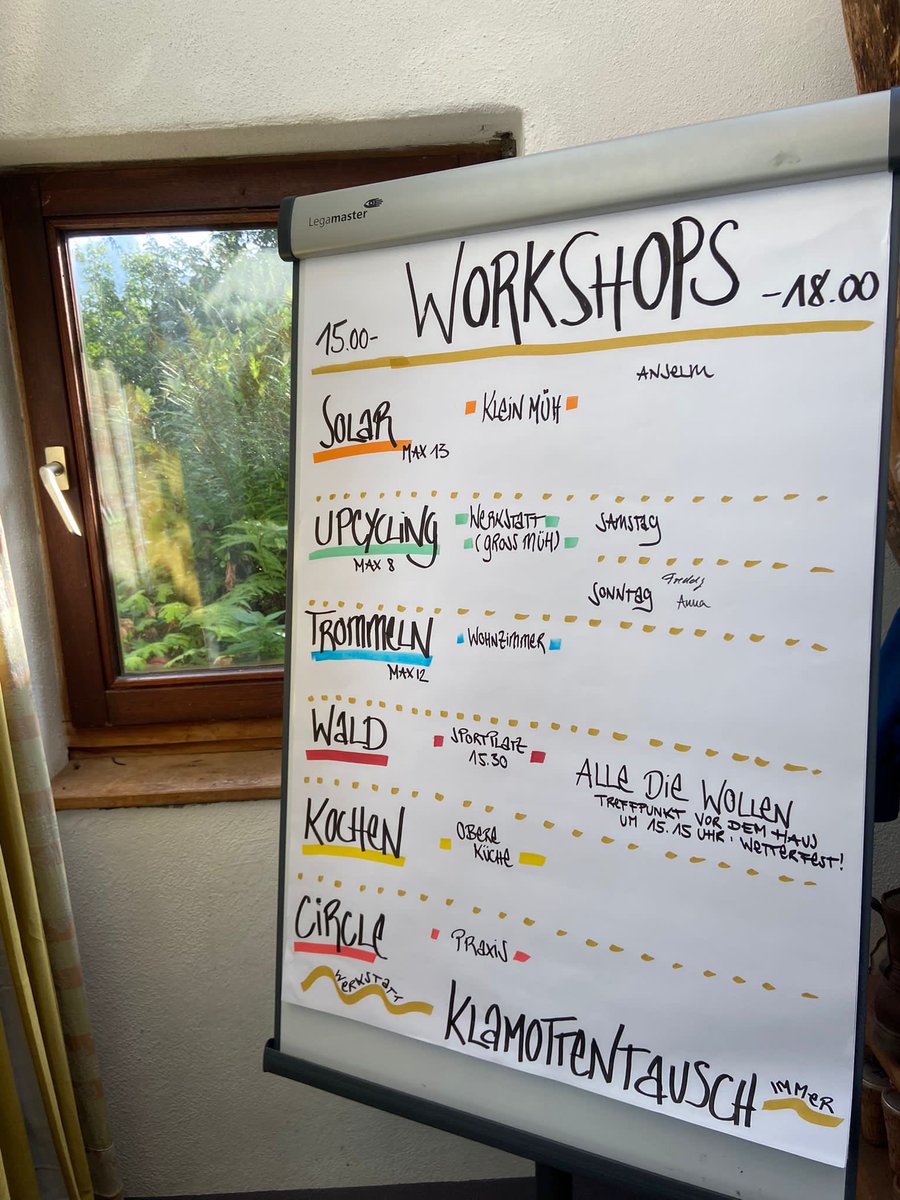 Legamaster
WORKSHOPS
15.00-
-18.00
SOLAR
MAX 13
KLEIN MÜH
ANSELM
UPCYCLING
MAX 8
WERKSTATT
(GROSS MÜH)
SAMSTAG
SONNTAG
Freddy
Anna
TROMMELN
MAX 12
WOHNZIMMER
WALD
SPORTPLATZ
15.30
ALLE DIE WOLLEN
TREFFPUNKT VOR DEM HAUS
UM 15.15 UHR · WETTERFEST!
KOCHEN
OBERE
KÜCHE
CIRCLE
PRAXIS
WERKSTATT
KLAMOTTENTAUSCH
IMMER